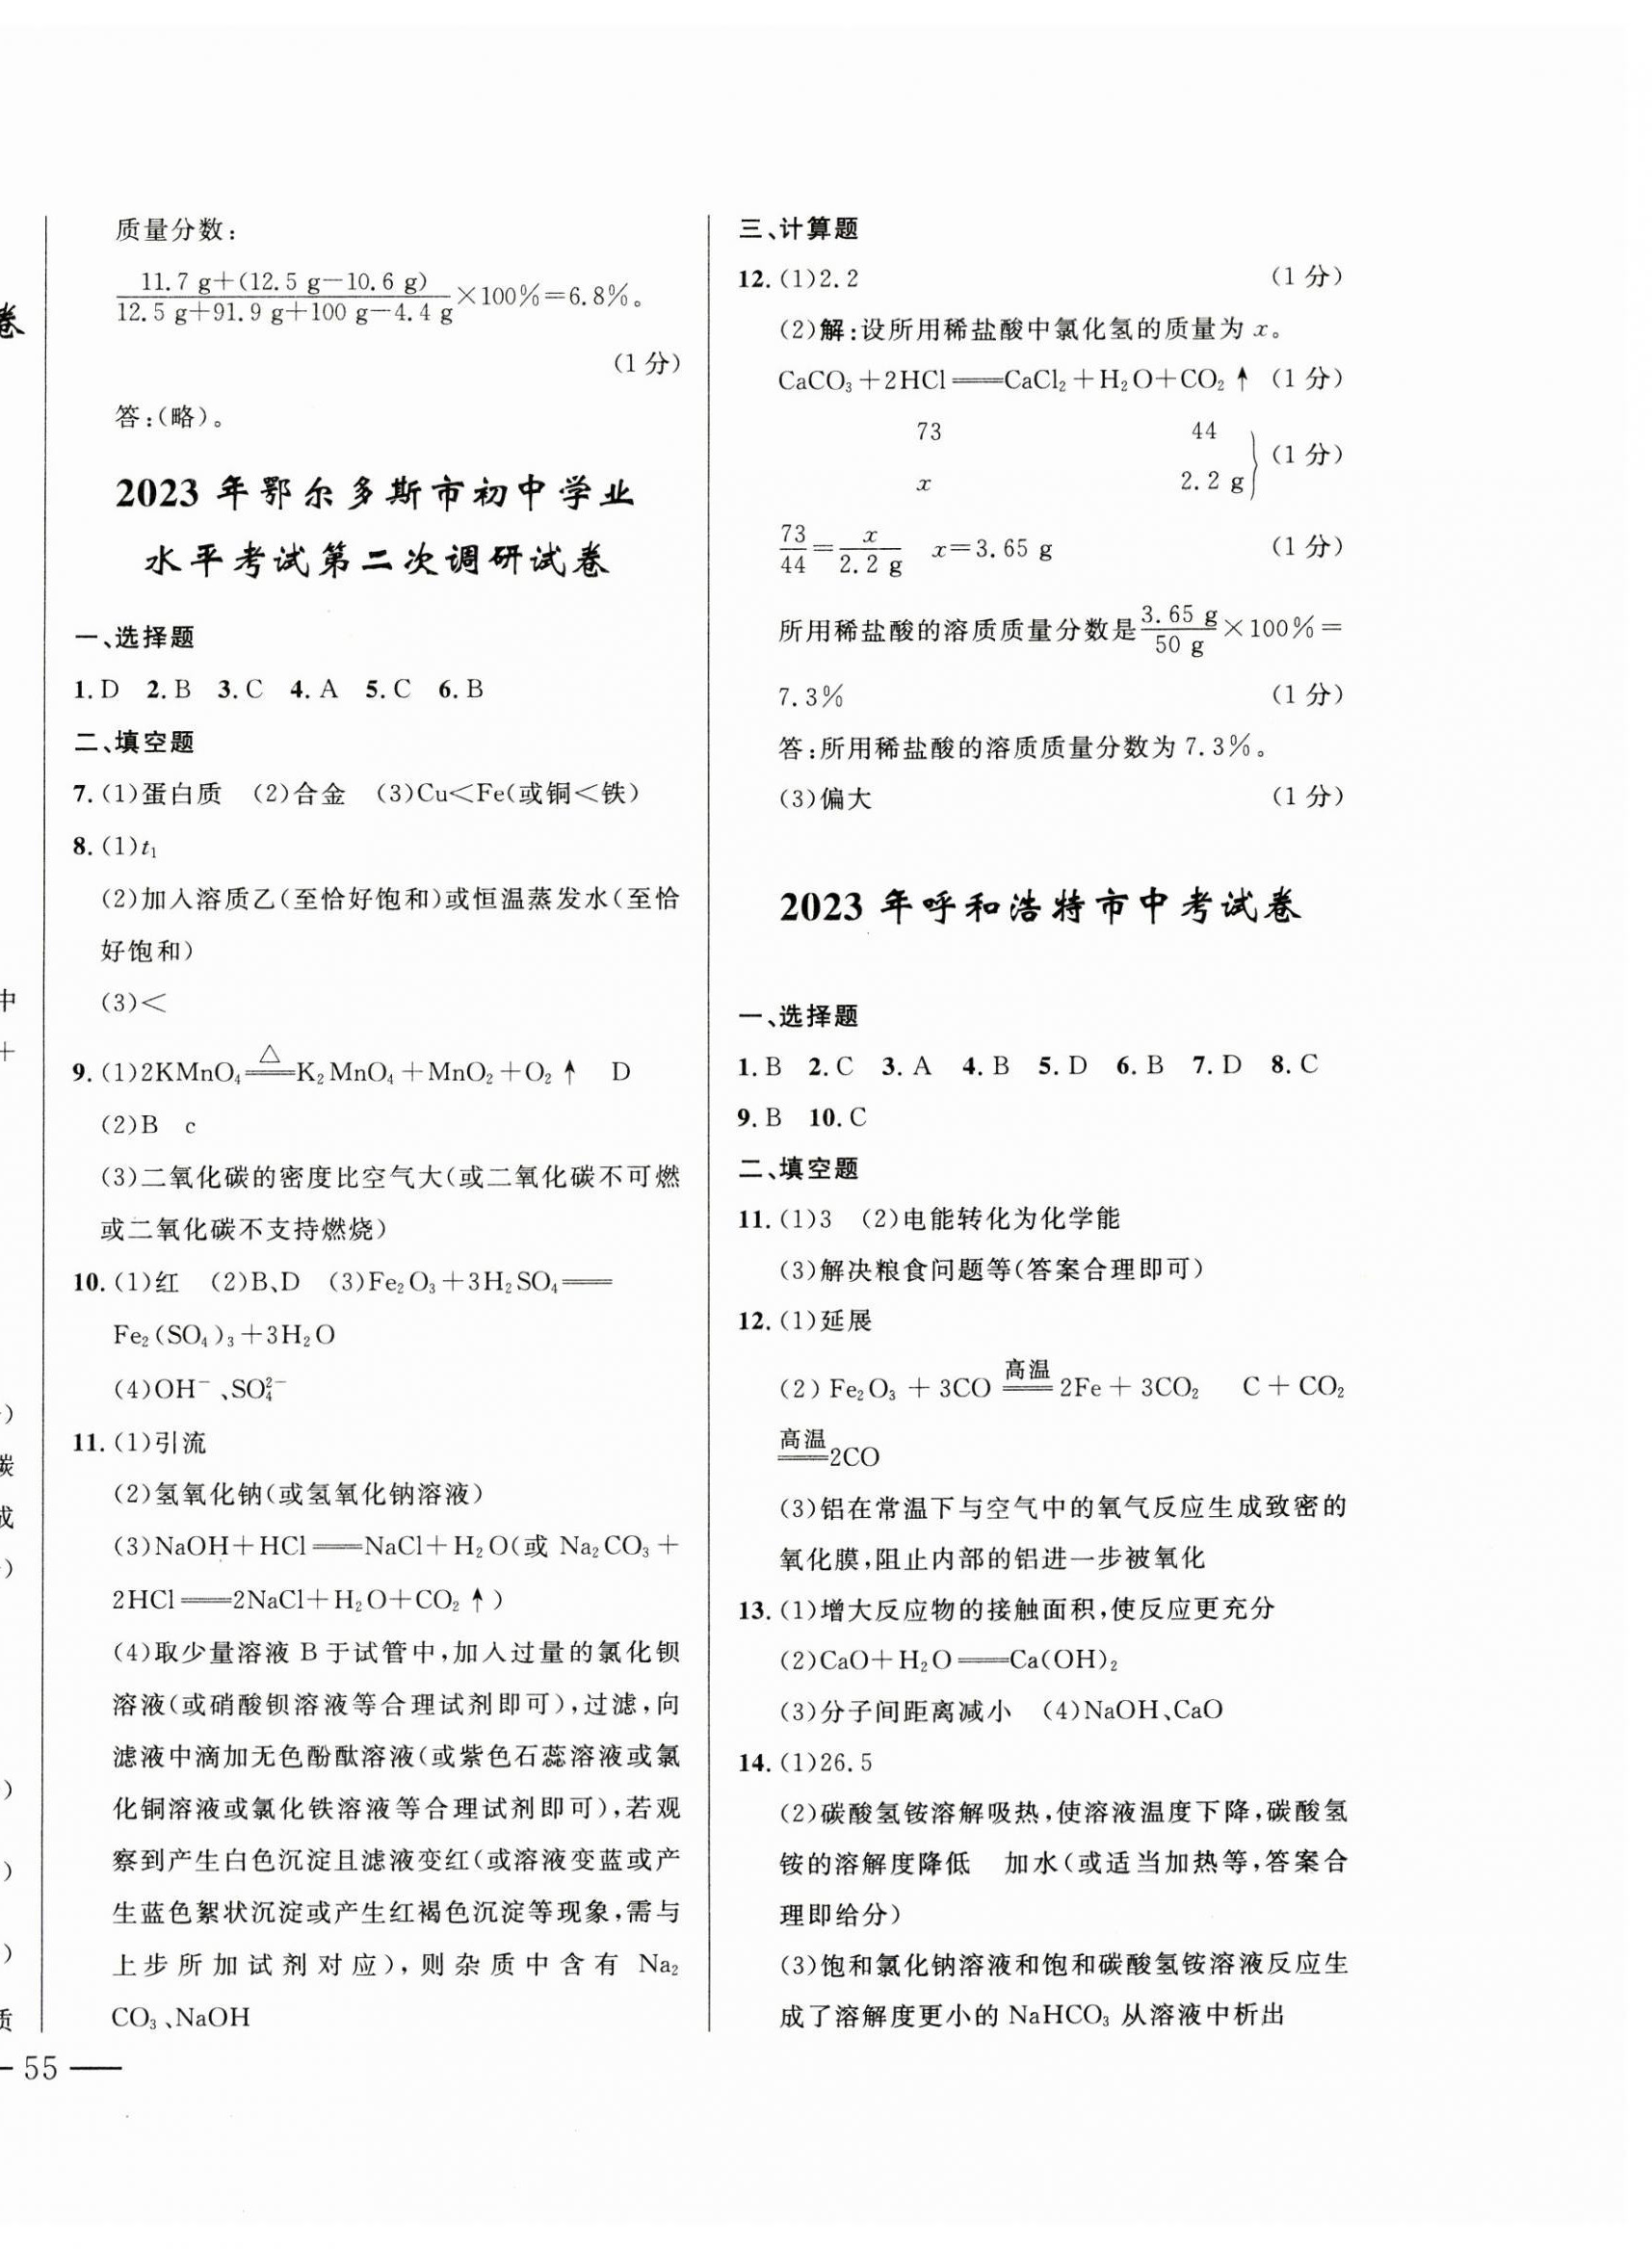 卷
中
＋
)
碳
成
)
)
)
)
质
质量分数:
11.7 g＋(12.5 g－10.6 g)
12.5 g＋91.9 g＋100 g－4.4 g ×100%＝6.8%。
(1 分)
答:(略)。
2023 年鄂尔多斯市初中学业
水平考试第二次调研试卷
一、选择题
1. D 2. B 3. C 4. A 5. C 6. B
二、填空题
7. (1)蛋白质 (2)合金 (3)Cu＜Fe(或铜＜铁)
8. (1)t₁
(2)加入溶质乙(至恰好饱和)或恒温蒸发水(至恰
好饱和)
(3)＜
9. (1)2KMnO₄ ══△══ K₂MnO₄＋MnO₂＋O₂↑ D
(2)B c
(3)二氧化碳的密度比空气大(或二氧化碳不可燃
或二氧化碳不支持燃烧)
10. (1)红 (2)B、D (3)Fe₂O₃＋3H₂SO₄══
Fe₂(SO₄)₃＋3H₂O
(4)OH⁻、SO₄²⁻
11. (1)引流
(2)氢氧化钠(或氢氧化钠溶液)
(3)NaOH＋HCl══NaCl＋H₂O(或 Na₂CO₃＋
2HCl══2NaCl＋H₂O＋CO₂↑)
(4)取少量溶液 B 于试管中,加入过量的氯化钡
溶液(或硝酸钡溶液等合理试剂即可),过滤,向
滤液中滴加无色酚酞溶液(或紫色石蕊溶液或氯
化铜溶液或氯化铁溶液等合理试剂即可),若观
察到产生白色沉淀且滤液变红(或溶液变蓝或产
生蓝色絮状沉淀或产生红褐色沉淀等现象,需与
上步所加试剂对应),则杂质中含有 Na₂
CO₃、NaOH
三、计算题
12. (1)2.2 (1 分)
(2)解:设所用稀盐酸中氯化氢的质量为 x。
CaCO₃＋2HCl══CaCl₂＋H₂O＋CO₂↑ (1 分)
73 44
x 2.2 g } (1 分)
73/44＝x/2.2 g x＝3.65 g (1 分)
所用稀盐酸的溶质质量分数是 3.65 g/50 g ×100%＝
7.3% (1 分)
答:所用稀盐酸的溶质质量分数为 7.3%。
(3)偏大 (1 分)
2023 年呼和浩特市中考试卷
一、选择题
1. B 2. C 3. A 4. B 5. D 6. B 7. D 8. C
9. B 10. C
二、填空题
11. (1)3 (2)电能转化为化学能
(3)解决粮食问题等(答案合理即可)
12. (1)延展
(2)Fe₂O₃＋3CO ══高温══ 2Fe＋3CO₂ C＋CO₂
══高温══ 2CO
(3)铝在常温下与空气中的氧气反应生成致密的
氧化膜,阻止内部的铝进一步被氧化
13. (1)增大反应物的接触面积,使反应更充分
(2)CaO＋H₂O══Ca(OH)₂
(3)分子间距离减小 (4)NaOH、CaO
14. (1)26.5
(2)碳酸氢铵溶解吸热,使溶液温度下降,碳酸氢
铵的溶解度降低 加水(或适当加热等,答案合
理即给分)
(3)饱和氯化钠溶液和饱和碳酸氢铵溶液反应生
成了溶解度更小的 NaHCO₃ 从溶液中析出
— 55 —